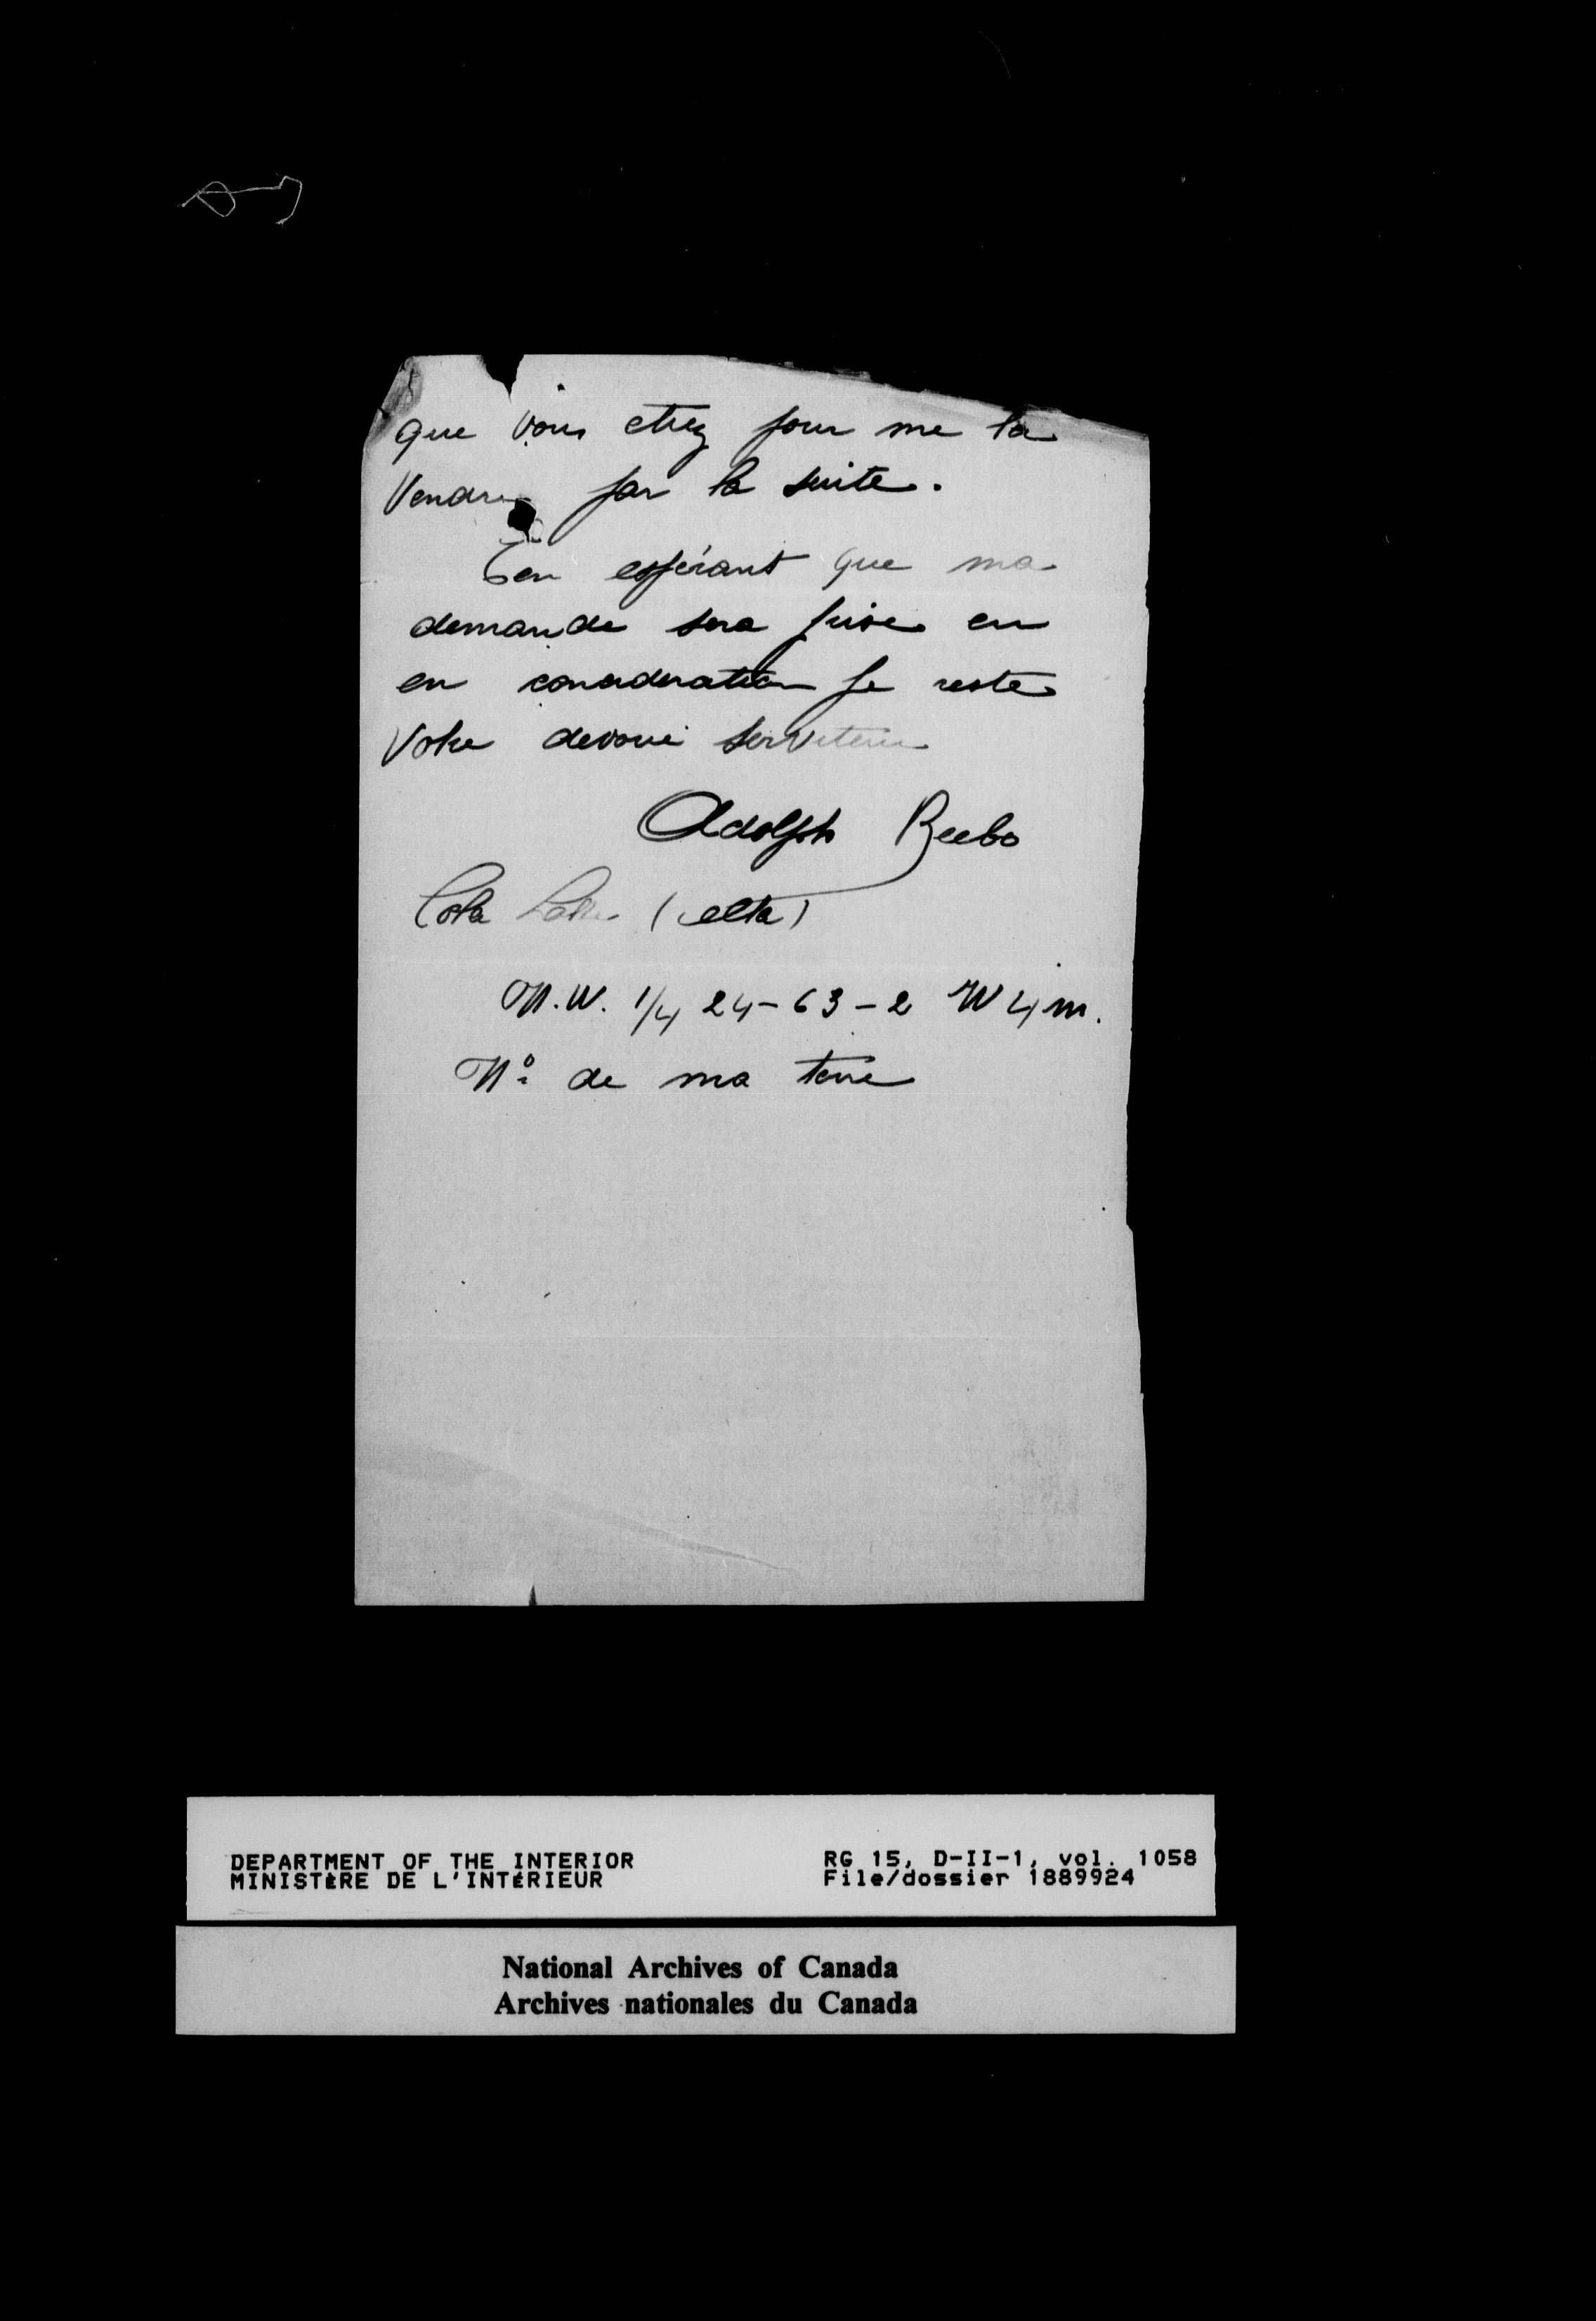 que vous etiez pour me la
Vendre par la suite.
En espérant que ma
demande sera prise en
en consideration je reste
Votre devoué serviteur
Adolph Beebo
Cold Lake (Alta)
N.W. 1/4 24-63-2 W 4 m.
No de ma terre
DEPARTMENT OF THE INTERIOR
MINISTÈRE DE L'INTÉRIEUR
RG 15, D-II-1, vol. 1058
File/dossier 1889924
National Archives of Canada
Archives nationales du Canada